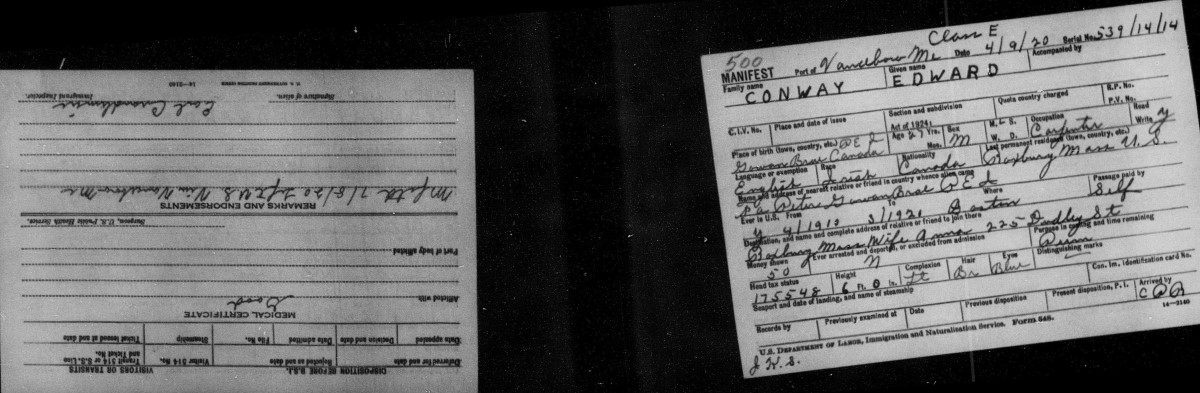 Class E
500
MANIFEST Port of Vanceboro Me Date 4/9/20 Serial No. 539/14/14
Family name CONWAY Given name EDWARD Accompanied by
C.I.V. No. Place and date of issue Section and subdivision Act of 1924: Quota country charged R.P. No. P.V. No.
Place of birth (town, country, etc.) Age 27 Yrs. Mos. Sex M M. S. W. D. Occupation Carpenter Read Write y
Gowan Brae Canada P E I
Language or exemption English Race Irish Nationality Canada Last permanent residence (town, country, etc.) Roxbury Mass U.S.
Name and address of nearest relative or friend in country whence alien came
Peter Gowan Brae P E I
Ever in U.S. From To Where Passage paid by
y 4/1913 3/1920 Boston Self
Destination, and name and complete address of relative or friend to join there
Roxbury Mass Wife Anna 225 Dudley St
Money shown 50 Ever arrested and deported, or excluded from admission N Purpose in coming and time remaining Perm
Head tax status 175548 Height 6 Ft. 0 In. Complexion Lt Hair Br Eyes Blue Distinguishing marks
Seaport and date of landing, and name of steamship Con. Im. Identification card No.
Records by Previously examined at Date Previous disposition Present disposition, P. I. Arrived by C P R
14—2140
U.S. DEPARTMENT OF LABOR, Immigration and Naturalization Service. Form 548.
J.K.S.
VISITORS OR TRANSITS DISPOSITION BEFORE B.S.I.
Transit 514 or S.S. Line and Ticket No. Visitor 514 No. Rejected as and date Deferred for and date
Ticket at issued at and date Steamship File No. Date admitted Decision and date Date appealed
MEDICAL CERTIFICATE
Afflicted with Good
Part of body affected
Surgeon, U.S. Public Health Service.
REMARKS AND ENDORSEMENTS
Signature of alien. Immigrant Inspector.
14—2140